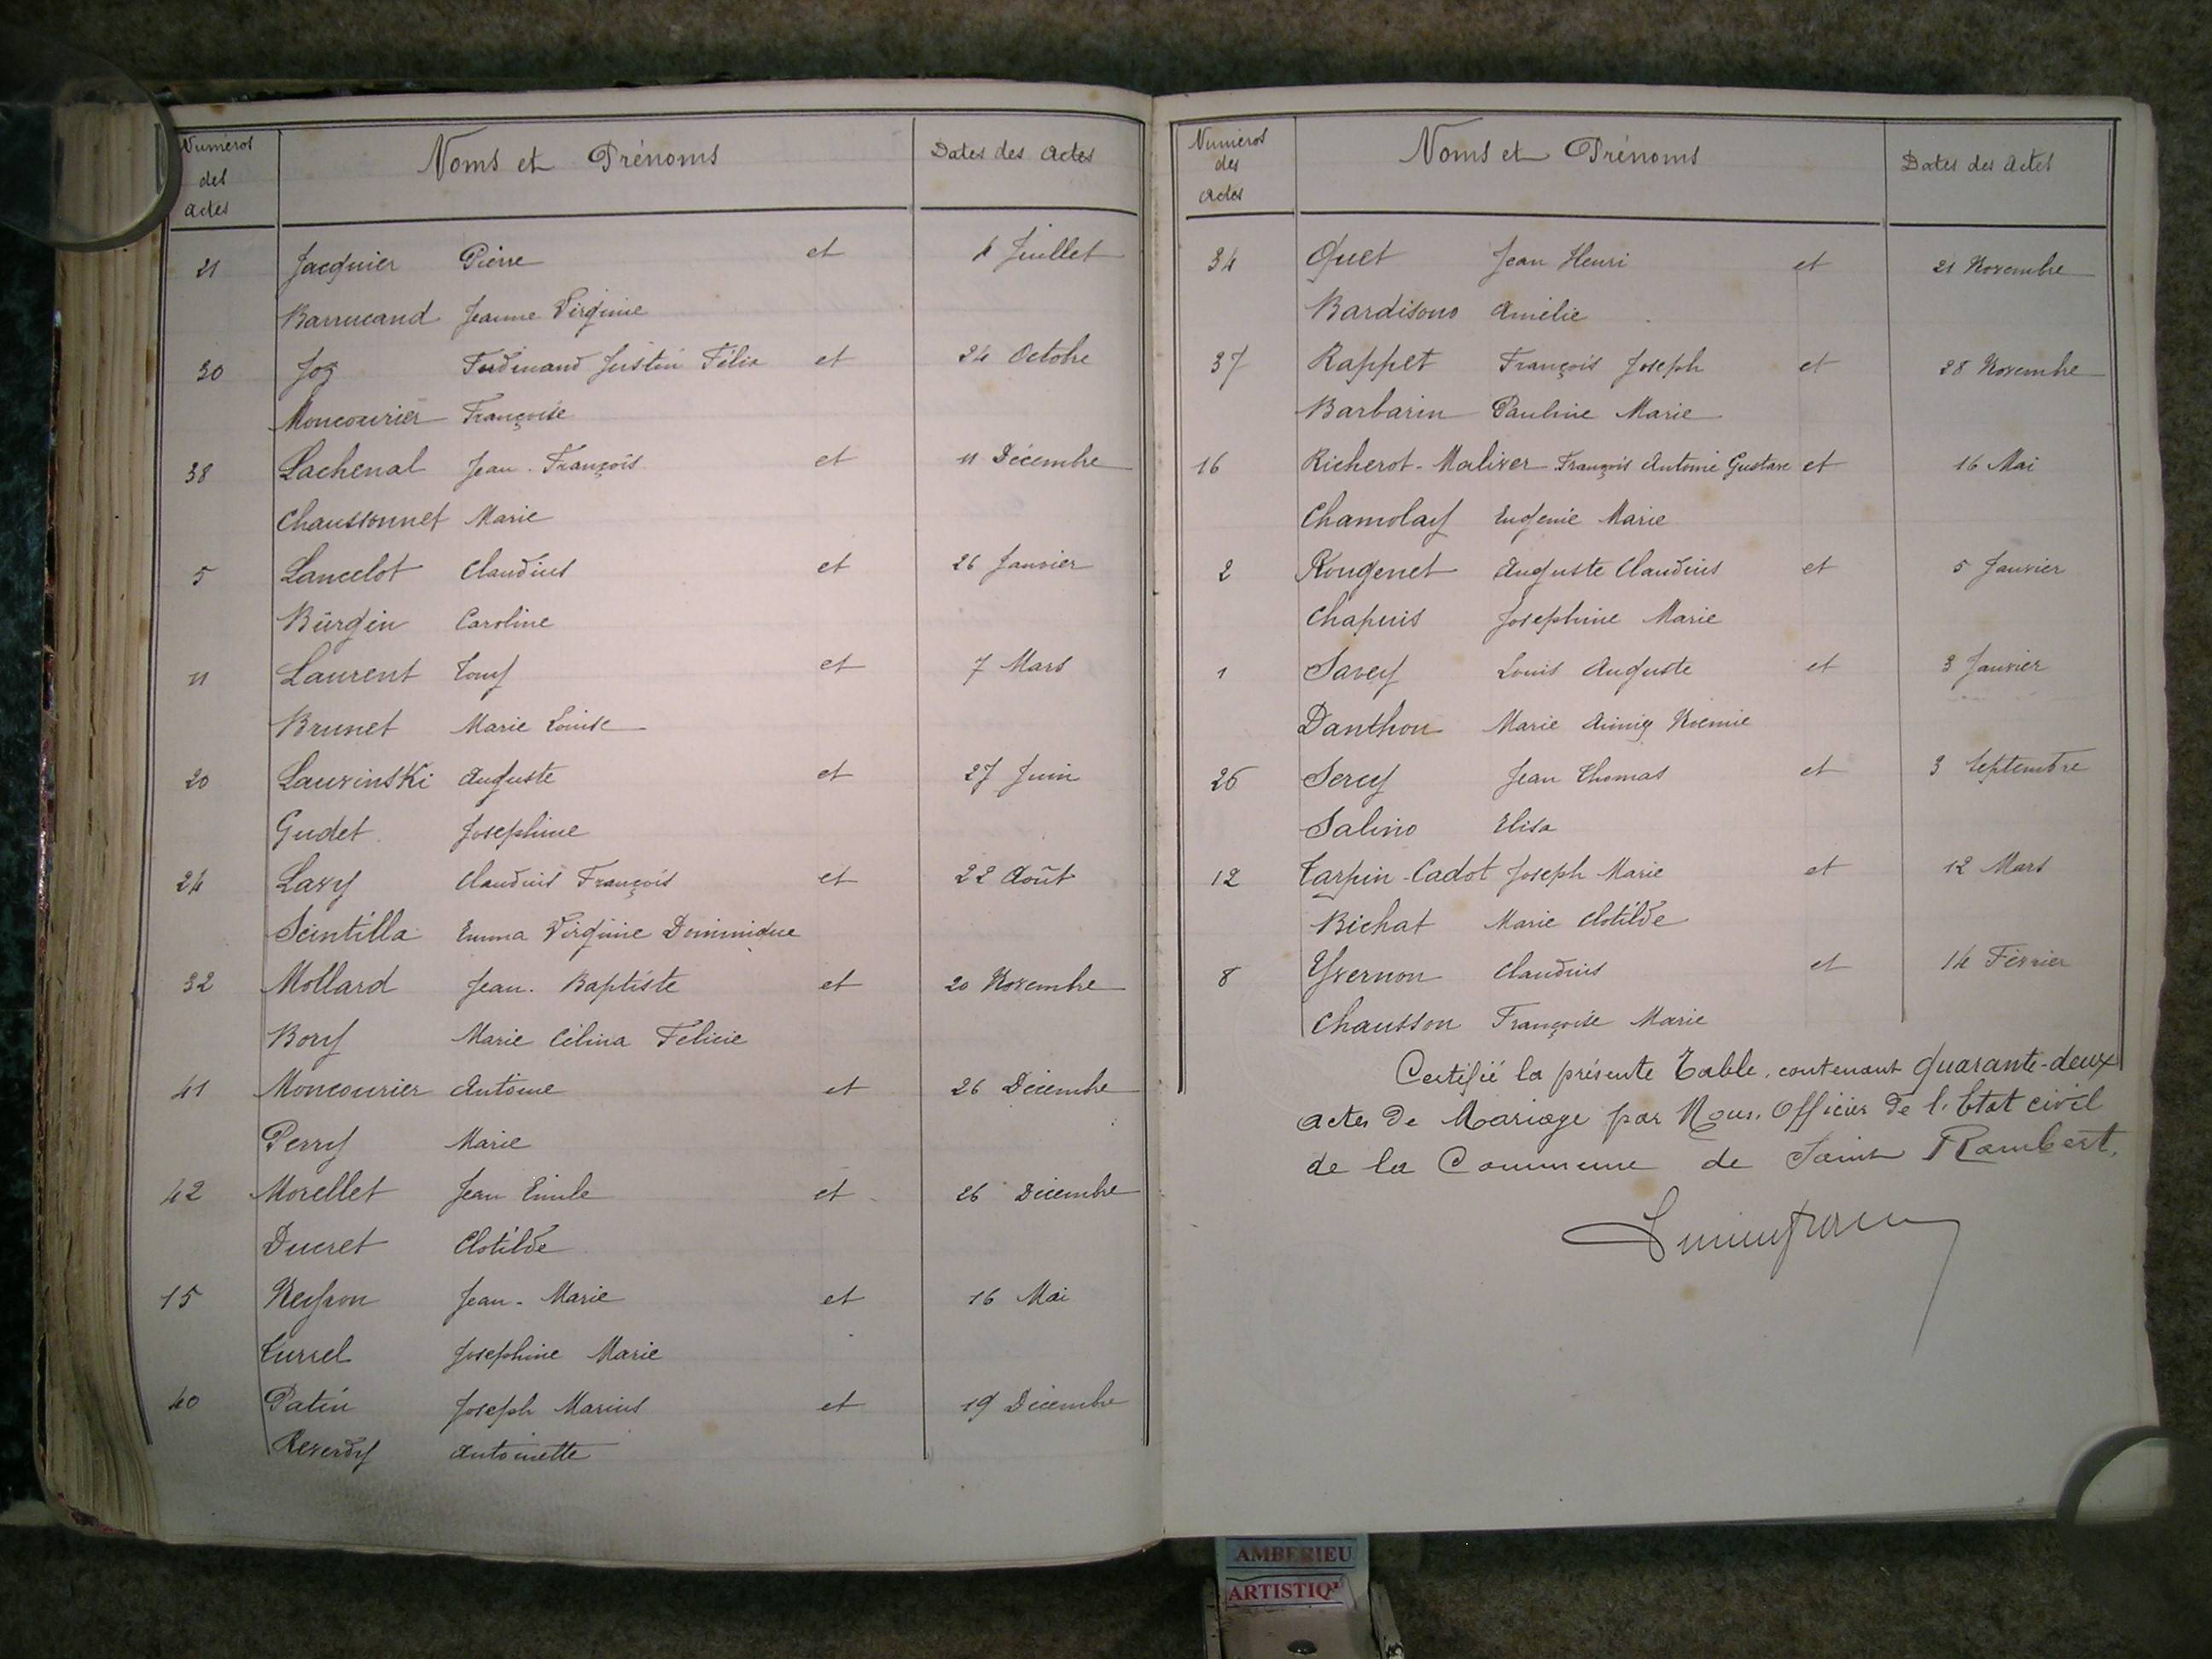 Numéros des Actes Noms et Prénoms Dates des Actes
21 Jacquier Pierre et 4 Juillet
Barrucand Jeanne Virginie
30 Joz Ferdinand Justin Félix et 24 Octobre
Moncourier Françoise
38 Lachenal Jean-François et 11 Décembre
Chaussonnet Marie
5 Lancelot Claudius et 26 Janvier
Bürgin Caroline
11 Laurent Tony et 7 Mars
Brunet Marie Louise
20 Lauvinski Auguste et 27 Juin
Gudet Josephine
24 Lavy Claudius François et 22 Août
Scintilla Emma Virginie Dominique
32 Mollard Jean-Baptiste et 20 Novembre
Bory Marie Célina Felicie
41 Moncourier Antoine et 26 Décembre
Perry Marie
42 Morellet Jean Emile et 26 Décembre
Ducret Clotilde
15 Neyron Jean-Marie et 16 Mai
Turrel Josephine Marie
40 Patin Joseph Marius et 19 Décembre
Reverdy Antoinette
Numéros des Actes Noms et Prénoms Dates des Actes
34 Quet Jean Henri et 21 Novembre
Bardisono Amélie
37 Rappet François Joseph et 28 Novembre
Barbarin Pauline Marie
16 Richerot-Maliver François Antonie Gustave et 16 Mai
Chamolay Eugenie Marie
2 Rougenet Auguste Claudius et 5 Janvier
Chapuis Josephine Marie
1 Savey Louis Auguste et 3 Janvier
Danthon Marie Noémie
26 Sercy Jean Thomas et 3 Septembre
Salino Elisa
12 Tarpin-Cadot Joseph Marie et 12 Mars
Bichat Marie Clotilde
8 Yvernon Claudius et 14 Février
Chausson Françoise Marie
Certifié la présente Table, contenant quarante-deux
actes de Mariage par Nous, Officier de l'Etat civil
de la Commune de Saint Rambert.
AMBERIEU
ARTISTIQ